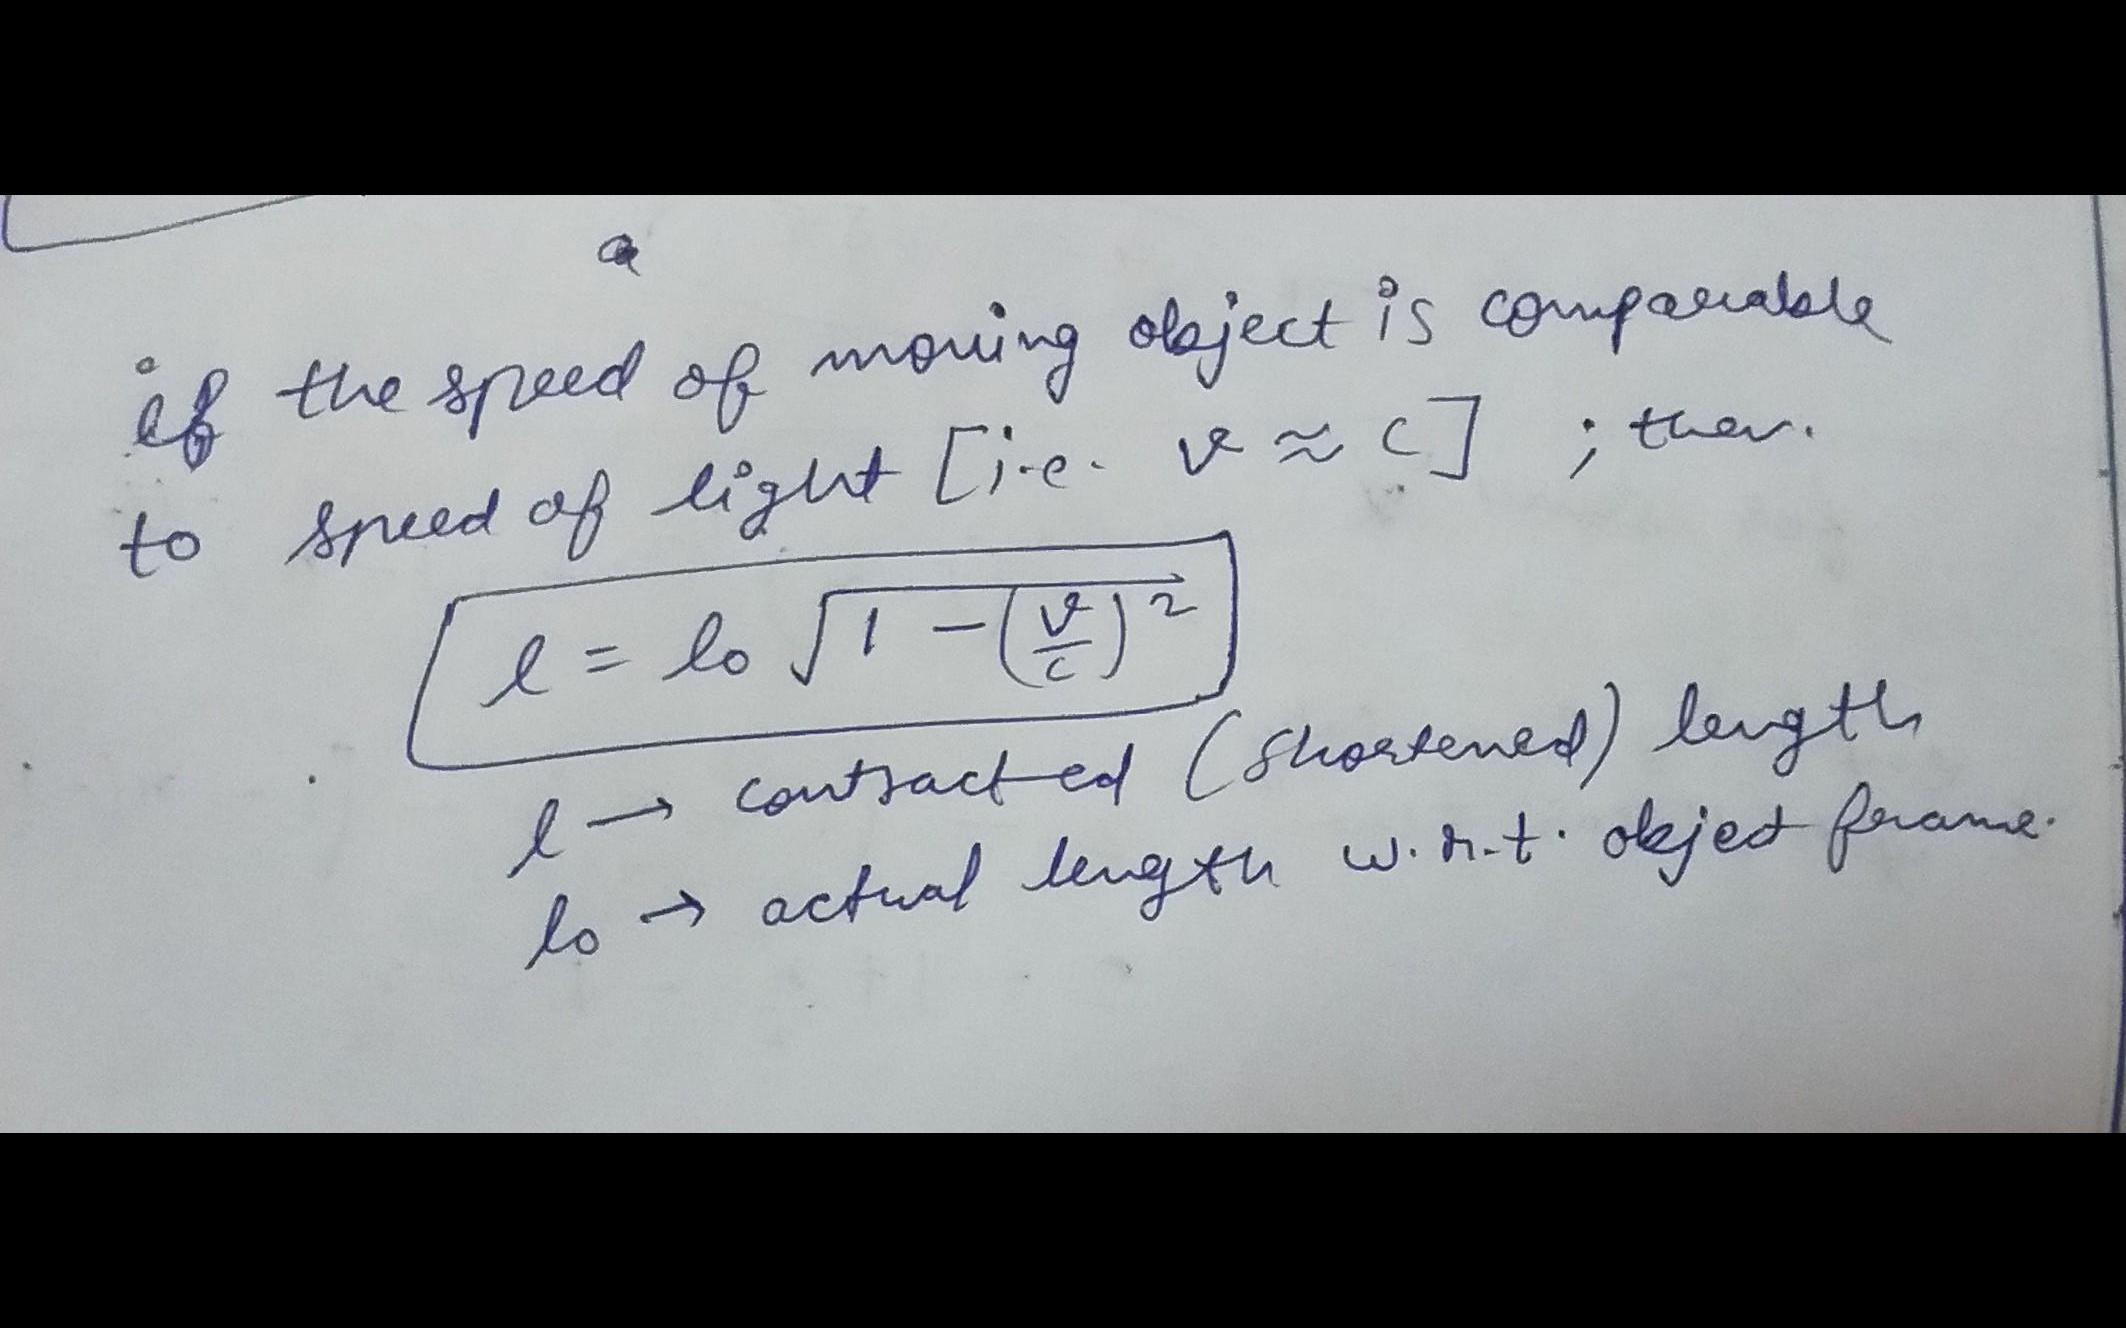 a
if the speed of moving object is comparable
to speed of light [i.e. v ≈ c] ; then.
l = l₀ √1 - (v/c)²
l → contracted (shortened) length
l₀ → actual length w.r.t. object frame.